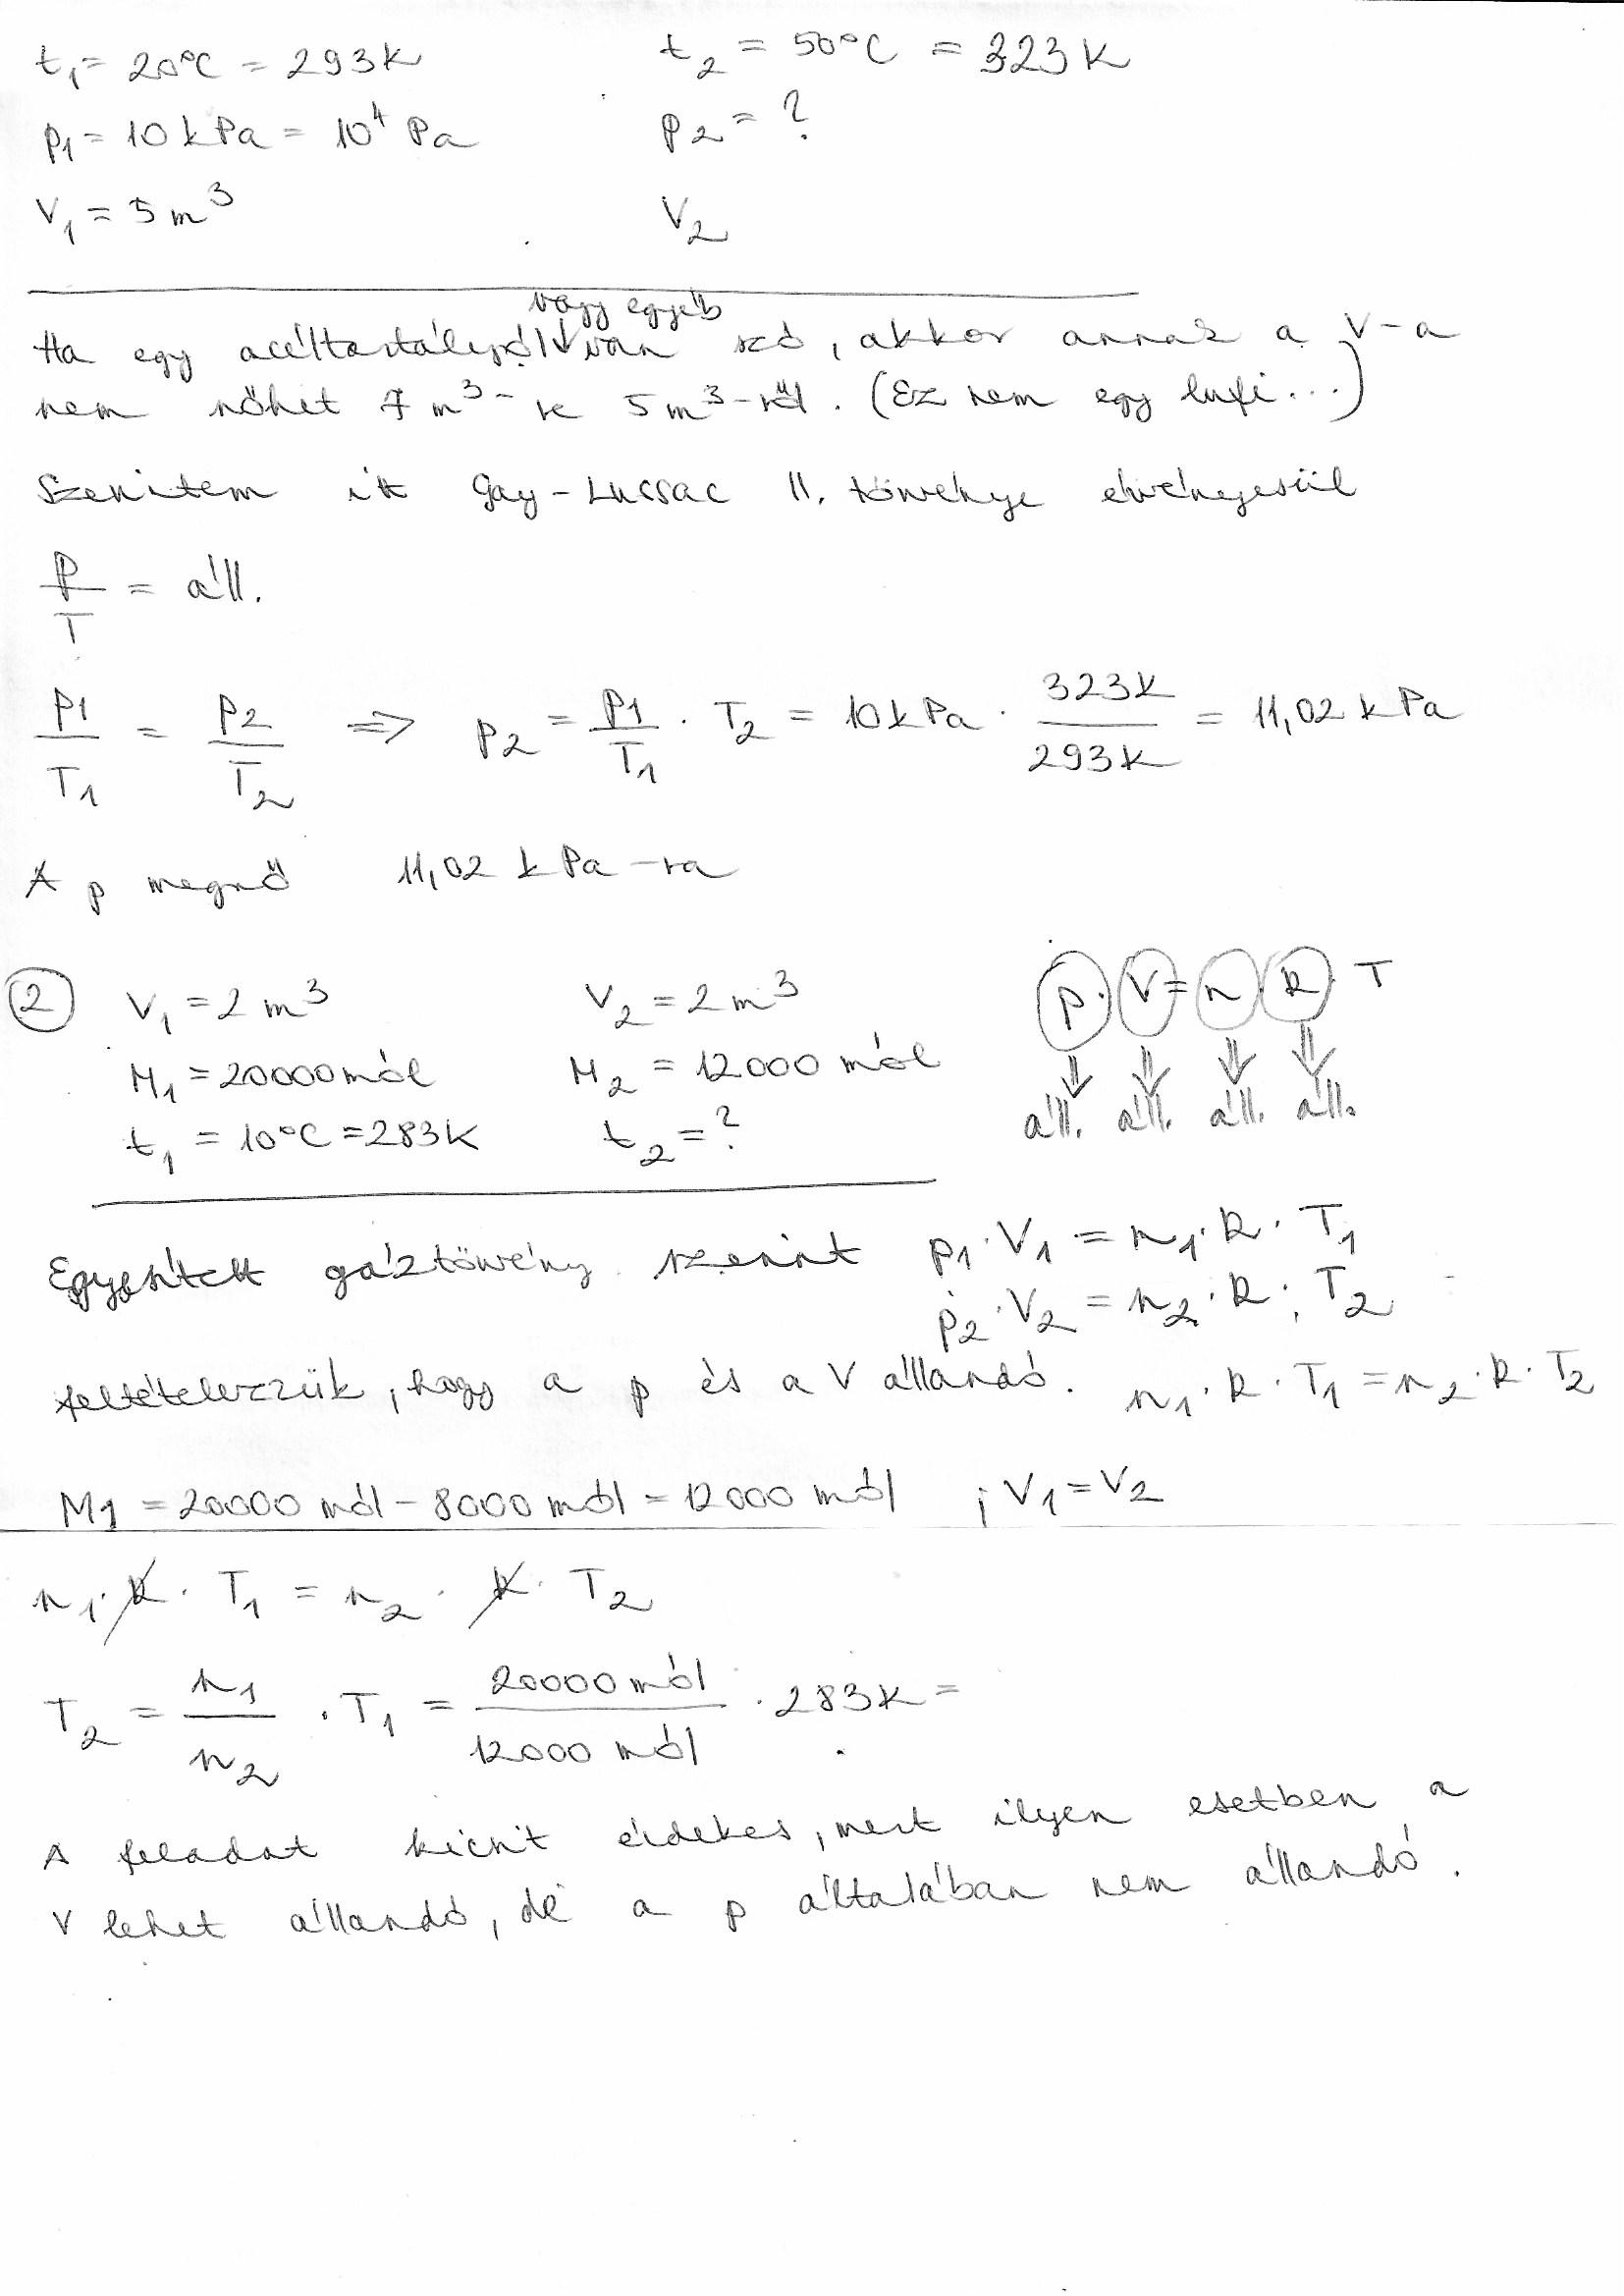 t₁ = 20°C = 293K t₂ = 50°C = 323K
p₁ = 10 kPa = 10⁴ Pa p₂ = ?
V₁ = 5 m³ V₂
vagy egyéb
Ha egy acéltartályról van szó, akkor annak a V-a
nem nőhet 7 m³-re 5 m³-ről. (Ez nem egy lufi...)
Szerintem itt Gay-Lussac II. törvénye érvényesül
p/T = áll.
p₁/T₁ = p₂/T₂ ⇒ p₂ = p₁/T₁ · T₂ = 10 kPa · 323K/293K = 11,02 kPa
A p megnő 11,02 kPa-ra
② V₁ = 2 m³ V₂ = 2 m³ p · V = n · R · T
M₁ = 20000 mól M₂ = 12000 mól ⇓ ⇓ ⇓ ⇓
t₁ = 10°C = 283K t₂ = ? áll. áll. áll. áll.
Egyesített gáztörvény szerint p₁ · V₁ = n₁ · R · T₁
p₂ · V₂ = n₂ · R · T₂
feltételezzük, hogy a p és a V állandó. n₁ · R · T₁ = n₂ · R · T₂
M1 = 20000 mól - 8000 mól = 12000 mól ; V₁ = V₂
n₁ · R · T₁ = n₂ · R · T₂
T₂ = n₁/n₂ · T₁ = 20000 mól/12000 mól · 283K =
A feladat kicsit érdekes, mert ilyen esetben a
V lehet állandó, de a p általában nem állandó.